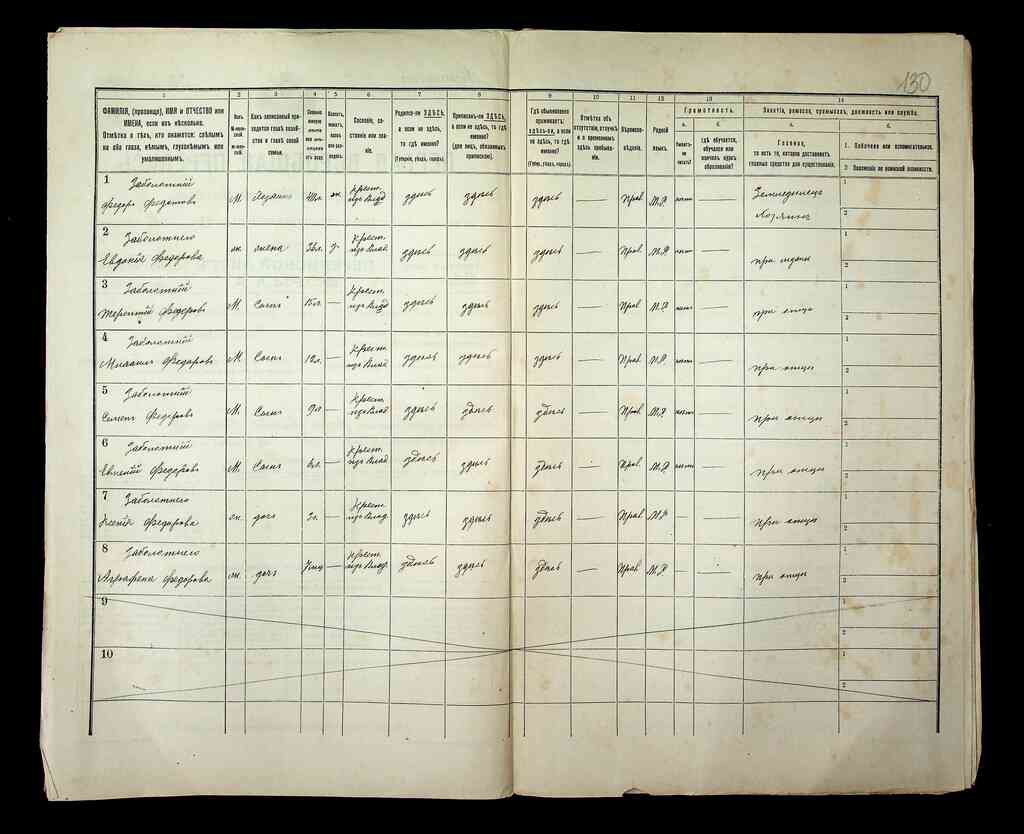 130
1 2 3 4 5 6 7 8 9 10 11 12 13 14
ФАМИЛІЯ, (прозвище), ИМЯ и ОТЧЕСТВО или ИМЕНА, если ихъ нѣсколько.
Отмѣтка о тѣхъ, кто окажется: слѣпымъ на оба глаза, нѣмымъ, глухонѣмымъ или умалишеннымъ.
Полъ.
Какъ записанный приходится главѣ хозяйства и главѣ своей семьи.
Сословіе, состояніе или званіе.
Родился-ли ЗДѢСЬ, а если не здѣсь, то гдѣ именно?
(Губернія, уѣздъ, городъ).
Приписанъ-ли ЗДѢСЬ, а если не здѣсь, то гдѣ именно?
(для лицъ, обязанныхъ припиской).
Гдѣ обыкновенно проживаетъ: здѣсь-ли, а если не здѣсь, то гдѣ именно?
(Губер., уѣздъ, городъ).
Отмѣтка объ отсутствіи, отлучкѣ и о временномъ здѣсь пребываніи.
Вѣроисповѣданіе.
Родной языкъ.
Грамотность.
а. Умѣетъ-ли читать?
б. гдѣ обучается, обучался или кончилъ курсъ образованія?
Занятіе, ремесло, промыселъ, должность или служба.
а. Главное, то есть то, которое доставляетъ главныя средства для существованія.
б. 1. Побочное или вспомогательное.
2. Положеніе по воинской повинности.
1 Заболотний Федоръ Федотовъ М. Хозяинъ ж. Крест. изъ Влад здѣсь здѣсь здѣсь — Прав. М.Р нѣтъ — Земледѣлецъ Хозяинъ 1 2
2 Заболотнего Евдокія Федорова ж. жена Крест. изъ Влад здѣсь здѣсь здѣсь — Прав М.Р нѣтъ — при мужѣ 1 2
3 Заболотний Терентій Федоровъ М. Сынъ 15л. — Крест. изъ Влад здѣсь здѣсь здѣсь — Прав М.Р нѣтъ — при отцѣ 1 2
4 Заболотний Михаилъ Федоровъ М. Сынъ 12л. — Крест. изъ Влад здѣсь здѣсь здѣсь — Прав. М.Р нѣтъ — при отцѣ 1 2
5 Заболотний Семенъ Федоровъ М. Сынъ 9л — Крест. изъ Влад здѣсь здѣсь здѣсь — Прав М.Р нѣтъ — при отцѣ 1 2
6 Заболотний Евгеній Федоровъ М. Сынъ 6л. — Крест. изъ Влад здѣсь здѣсь здѣсь — Прав. М.Р нѣтъ — при отцѣ 1 2
7 Заболотнего Ксенія Федорова ж. дочь 3г. — Крест. изъ Влад. здѣсь здѣсь здѣсь — Прав М.Р — — при отцѣ 1 2
8 Заболотнего Аграфена Федорова ж. дочь — Крест. изъ Влад. здѣсь здѣсь здѣсь — Прав М.Р — — при отцѣ 1 2
9 1 2
10 1 2